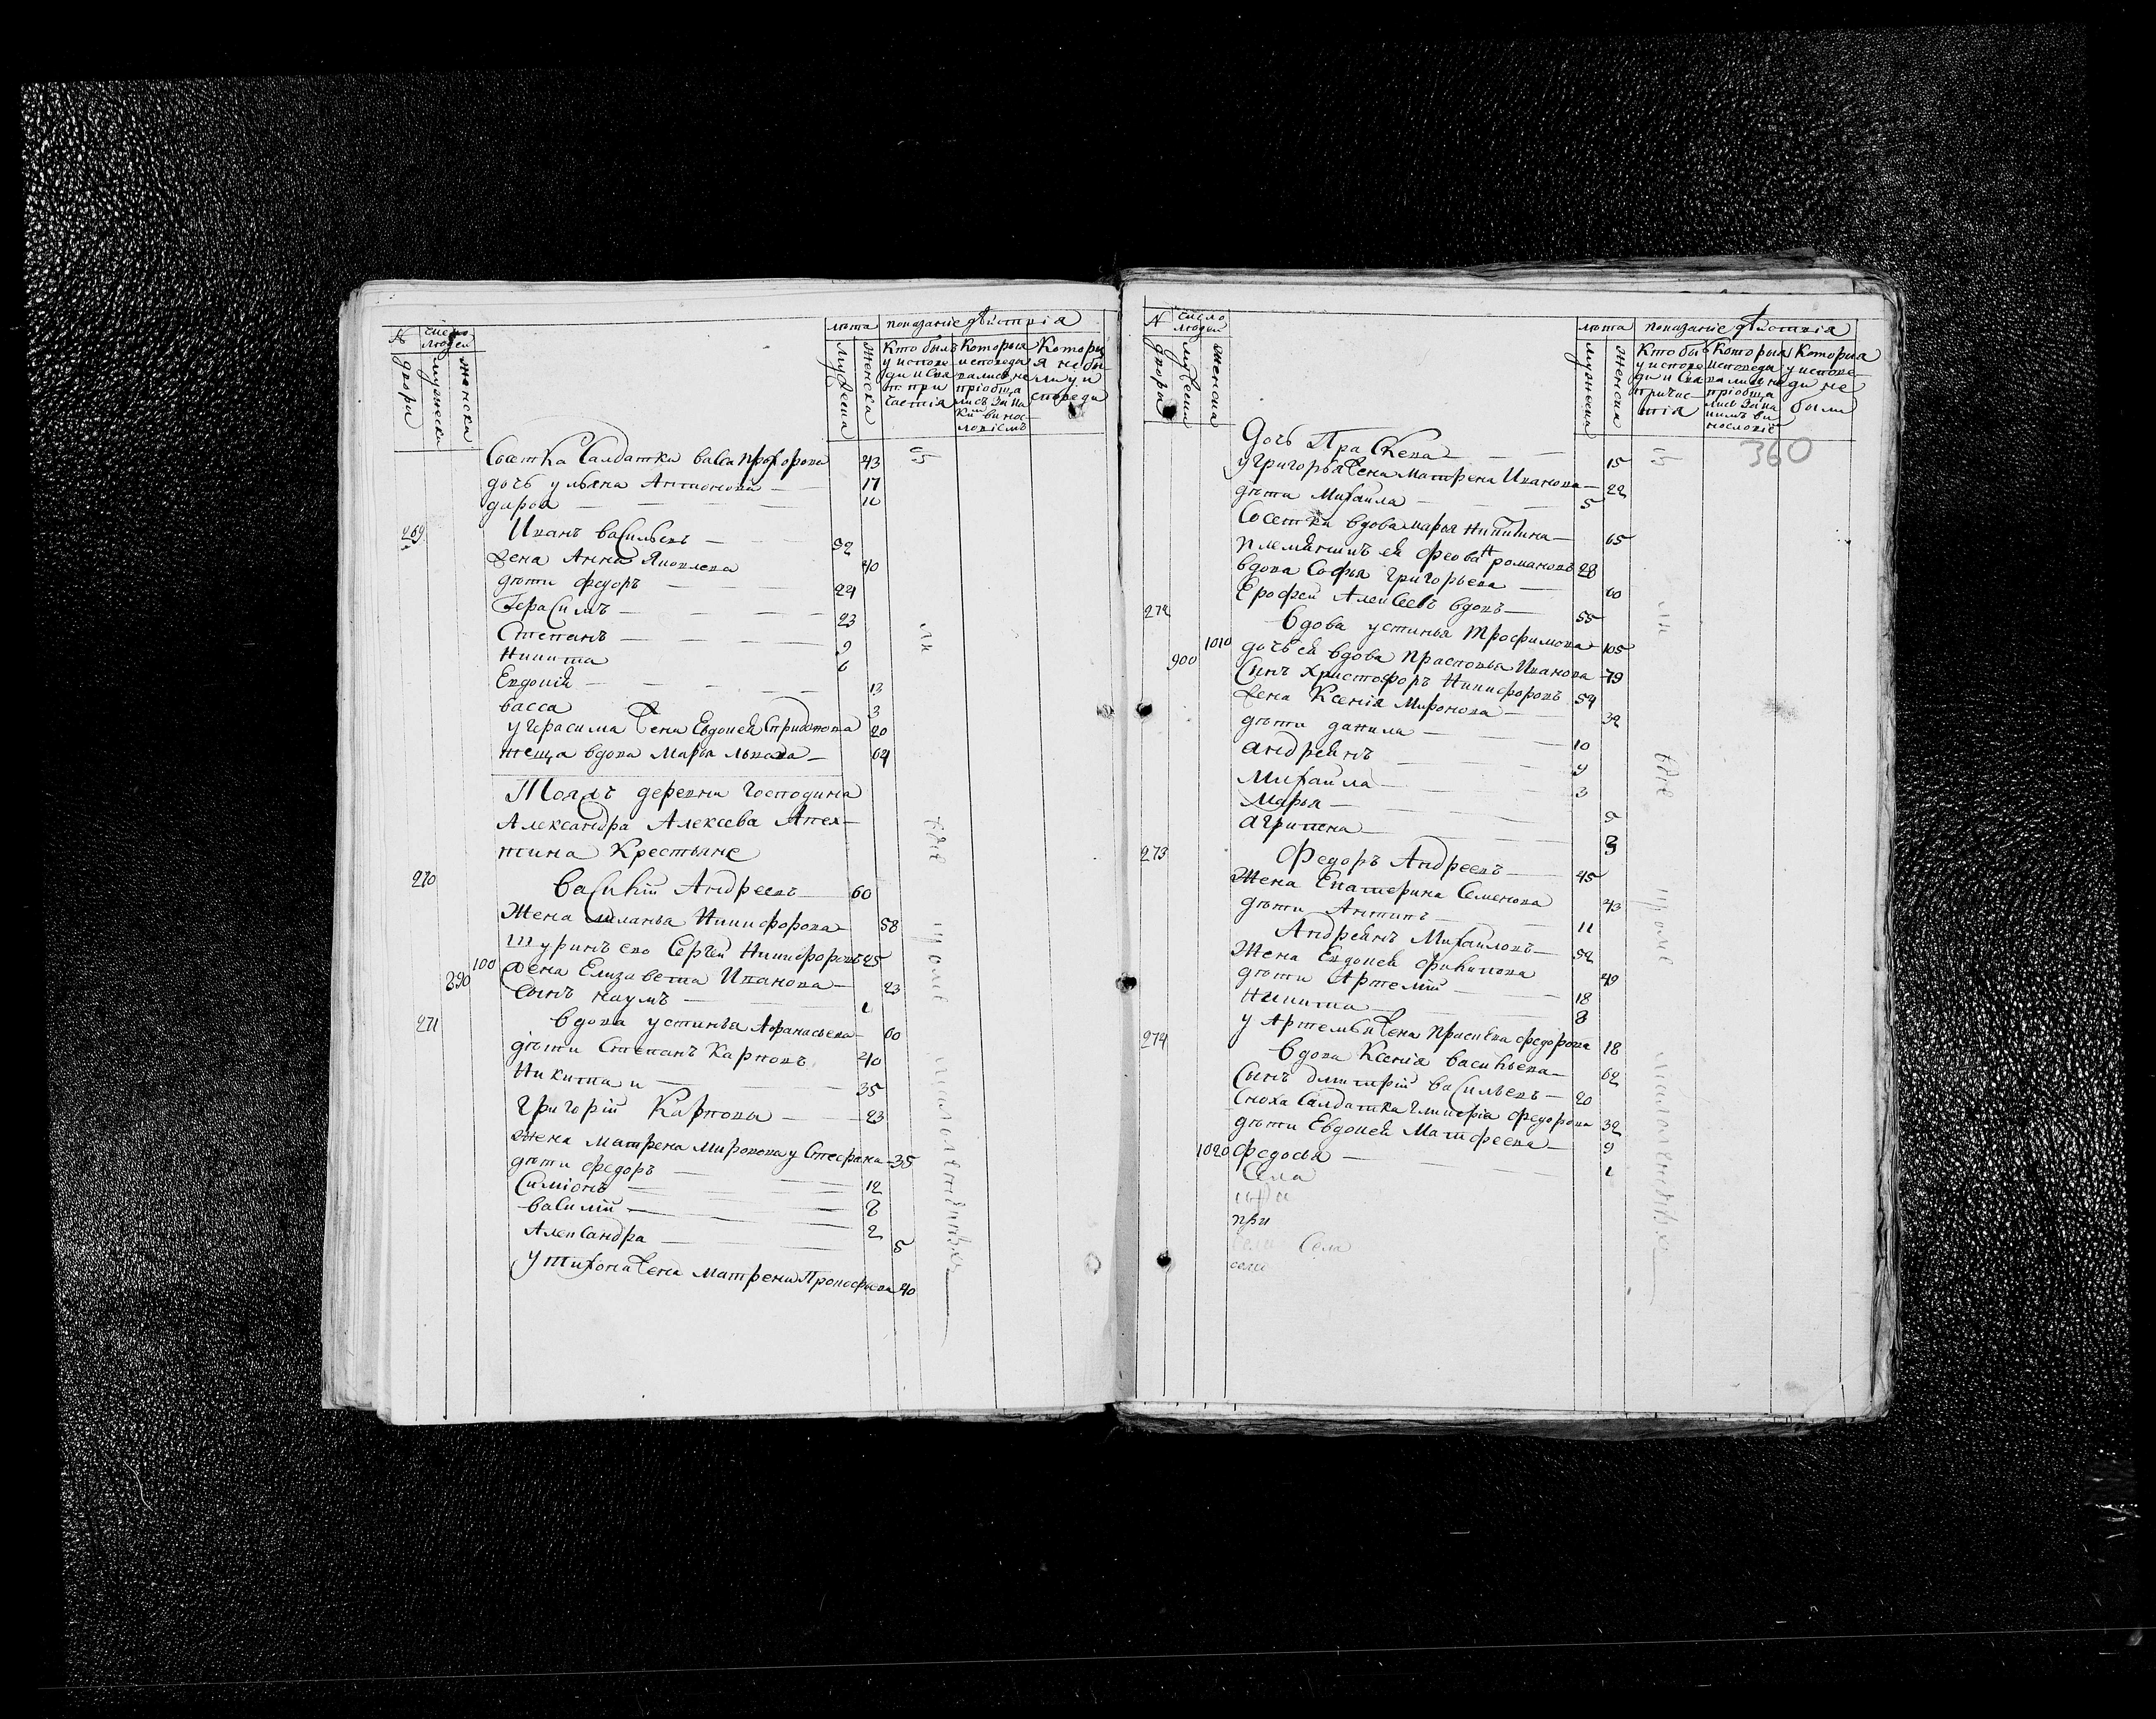 № двора
число людей
мужеска
женска
лѣта
мужеска
женска
показанiе дѣйствiя
Кто былъ у исповеди и свят. причастiя
Которыя исповедались не прiобщались
Которыя не были у исповеди
Сосетка Салдатка васса прохорова 43
дочь ульяна Антионова — 17
дарья — — — 11
269 Иванъ васильевъ — 52
жена Анна Яковлева 40
дѣти федоръ — — 24
Герасимъ — — — 23
Степанъ — — — 9
Никита 6
Евдокiя — — — 13
васса 3
у герасима жена Евдокея Спридонова 20
теща вдова марья львова — 64
Тояжъ деревни Господина
Александра Алексева Апех-
тина Крестьяне
270 василiй Андреевъ — 60
Жена маланья Никифорова — 58
шуринъ ево Сергѣй Никифоровъ 25
100 жена Елизавета Иванова — 23
890 сынъ наумъ — — 1
271 вдова устинья Афанасьева — 60
дѣти Степанъ Карповъ 40
Никита и — — 35
григорiй Карповы — 23
жена матрена миронова у Стефана — 35
дѣти федоръ — — 12
Симiонъ — — 8
василiй — — 2
Александра — — 5
у тихона жена матрена Прокофьева 40
№ двора
число людей
мужеска
женска
лѣта
мужеска
женска
показанiе дѣйствiя
Кто бы у исповеди и свя причастiя
Которыя исповедались не прiобщались
Которыя у исповеди не были
360
дочь Праскева — — 15
у григорья жена матрена Иванова — 22
дѣти михаила — 5
Сосетка вдова марья никитина — 65
племянникъ ей феофанъ романовъ 28
вдова Софья григорьева — 60
Ерофей Алексеевъ вдовъ — 55
272 вдова устинья трофимова — 105
1010 дочь ей вдова прасковья Иванова — 79
900 Сынъ христофоръ Никифоровъ 54
жена Ксенiя Миронова — 32
дѣти данила — — 10
андреянъ — — 9
михаила — — 3
марья — — 5
агрипена — 3
273 федоръ Андреевъ — 45
Жена Екатерина Семенова 43
дѣти Антипъ — — 11
Андреянъ Михаиловъ — 52
Жена Евдокея филипова 49
дѣти Артемiй — — 18
Никита — — 8
у Артемья жена праскева федорова 18
274 вдова Ксенiя васильева — 62
Сынъ дмитрiй васильевъ — 20
Сноха Салдатка гликерiа федорова 32
дѣти Евдокея Матфеева — 9
1020 федосья — — 1
Села
при
Села